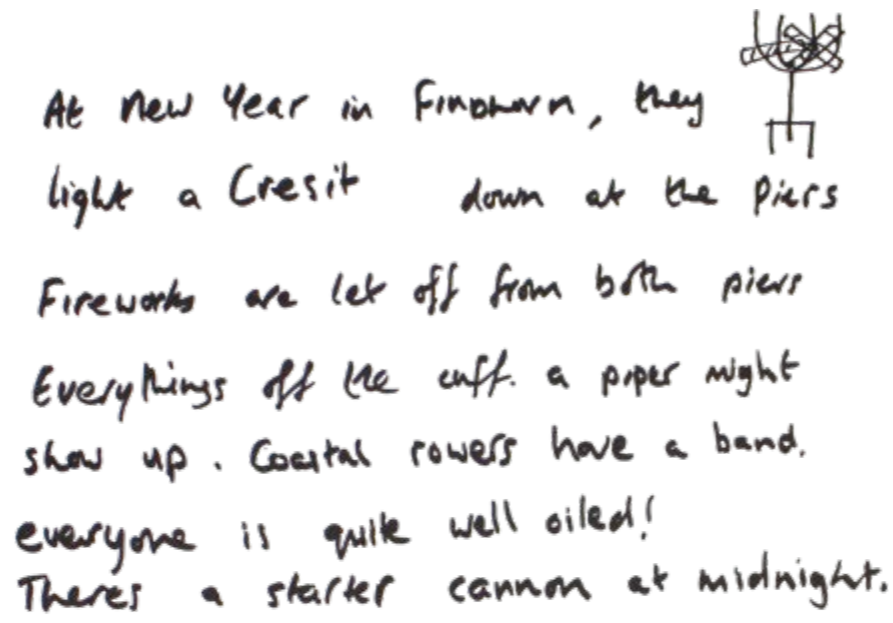 At New Year in Findhorn, they
light a Cresit down at the Piers
Fireworks are let off from both piers
Everythings off the cuff. a piper might
show up. Coastal rowers have a band.
everyone is quite well oiled!
Theres a starter cannon at midnight.